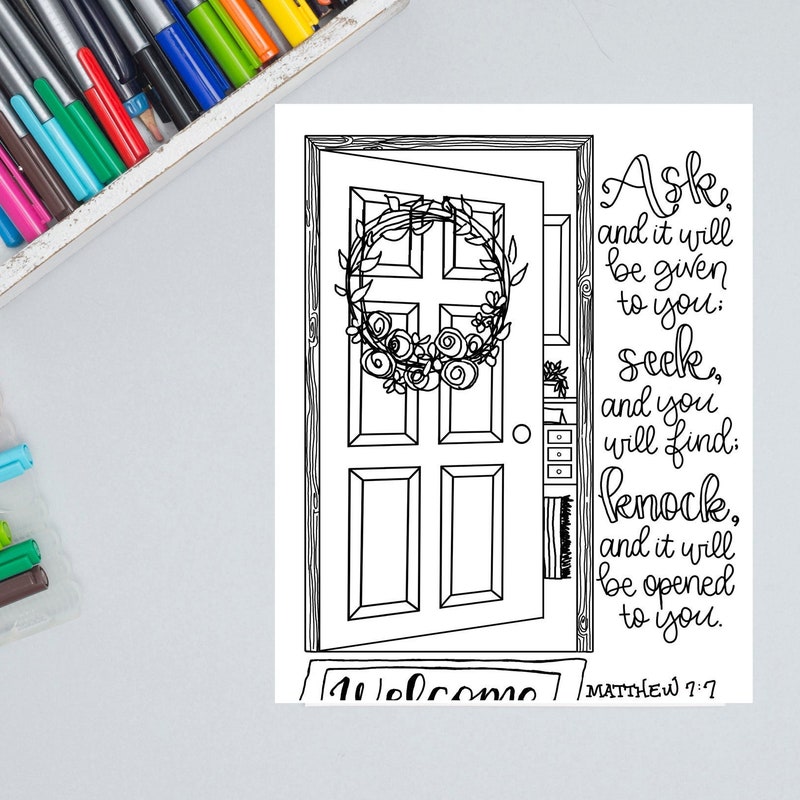 Ask,
and it will
be given
to you;
seek,
and you
will find;
knock,
and it will
be opened
to you.
Welcome
MATTHEW 7:7